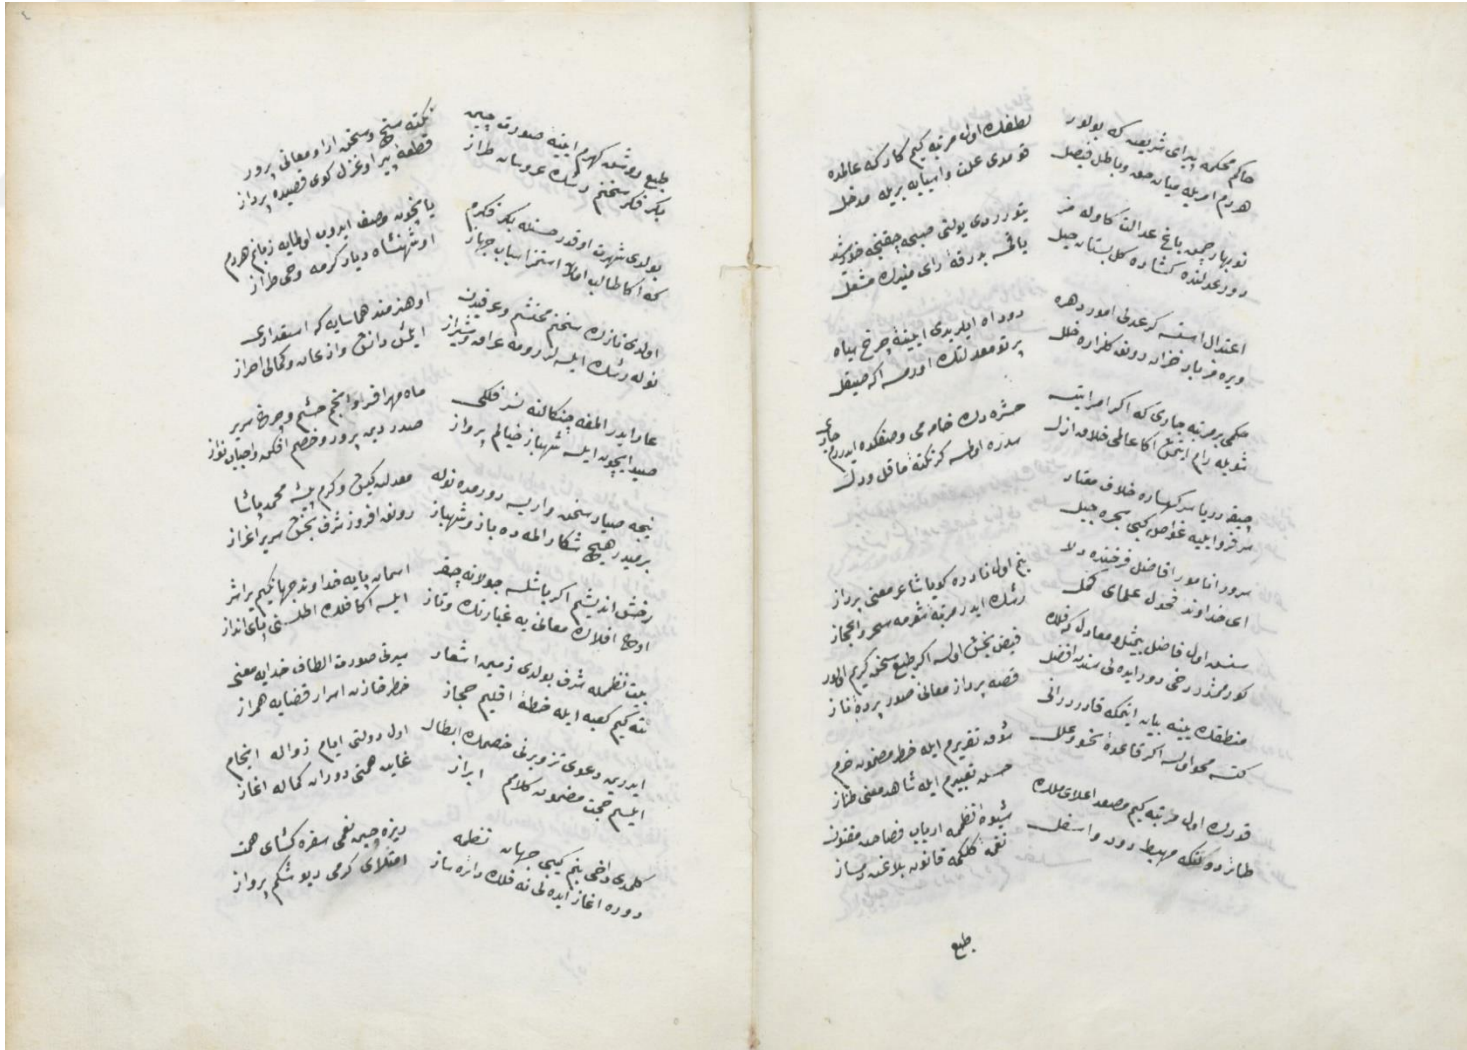 حاكم محكمه پيراى شريعت كه بولور
هردم امريله ميان حق وباطل فيصل
نوبهار چمن باغ عدالت كاوله مز
دور عدلنده كشاده كل بستان حيل
اعتدال استسه كر عدلى امور دهره
ويره مز باد خزان رونق كلزاره خلل
حكمى بر مرتبه جارى كه اكر امر ايتسه
شويله رام ايتمش اكا عالمى خلاق ازل
چيقه دريا سر كهساره خلاف معتاد
سر فرو ايليه غواص كبى بحره جبل
سرور نامور افاضل فرخنده دلا
اى خداوند فحول علماى كمل
سنسن اول فاضل بيمثل ومعادل كه فلك
كورممشدر دخى دور ايده لى سندن افضل
منطقك يينه بيان ايتمكه قادر درانى
كتسه محو اولسه اكر قاعدۀ نحو وعلل
قدرك اول مرتبه كيم مصعد اعلاى ملك
طائر دولتكه مهبط دون واسفل
لطفك اول مرتبه كيم كاركه عالمده
قومدى علت واسبابه بريله مدخل
يتورردى يولنى صبحه چقنجه خورشيد
ياقسه بدرقۀ راى منيرك مشعل
دود اه ايلر يدى ايينۀ چرخ سياه
پرتو معدلتك اورمسه اكه صيقل
حشره دك خامه مى وصفكده ايدردم جارى
سوزه اولمسه كر نكتۀ ما قل ودل
بنم اول نادره كويا شاعر معنى پرداز
رشك ايدر مرتبۀ شعرمه سحر واعجاز
فيض بخش اولسه اكر طبع سخن كريم الور
قصه پرداز معانى صور پردۀ ناز
شوق تقريرم ايله خط مضمون خرم
حسن تعبيرم ايله شاهد معنى طناز
شيوۀ نظمه ارباب فصاحت مفتون
نغمۀ كلكمه قانون بلاغت دمساز
طبع
طبع روشن كهرم ايينۀ صورت چين
بكر فكر سخنم رشك عروسان طراز
بولدى شهرت اوقدر حسنله بكر فكرم
كه اكا طالب اولان استمز اسباب جهاز
اولدى نازك سخنم محتشم وعرفيدن
نوله رشك ايلسه لر رومه عراق وشيراز
عار ايدر المغه چنكالنه نسر فلكى
صيد ايچون ايلسه شهباز خيالم پرواز
نيجه صياد سخن وار ايسه دورمده نوله
برميدر هيچ شكار المه ده باز وشهباز
رخش انديشم اكر باشلسه جولانه چيقر
اوج افلاك معانى يه غبار تك وتاز
بيت نظمله شرف بولدى زمين اشعار
نته كيم كعبه ايله خطۀ اقليم حجاز
ايدرين دعوى تزويرنى خصمك ابطال
ايلسم حجت مضمون كلامم ابراز
كلمدى داخى بنم كبى جهان نظمه
دوره اغاز ايده لى نه فلك دائره ساز
نكته سنج وسخن ارا ومعانى پرور
قطعه پيرا وغزل كوى قصيده پرداز
يا نيچون وصف ايدوب اولمايه زبانم هردم
او شهنشاه ديار كرمه مدحت طراز
او هنرمند هماسايه كه استعدادى
ايلمش دانش واذعان وكمالى احراز
ماه مهر افسر وانجم حشم وچرخ سرير
صدر دين پرور وخصم افكن واحباب نواز
معدلت كيش وكرم پيشه محمد پاشا
رونق افروز شرف بخش سرير اعزاز
اسمان پايه خداوند جهان كيم يراشر
ايلسه اكا فلك اطلسنى پاى انداز
سيرتى صورت الطاف خدايه معنى
خاطرى خازن اسرار قضايه همراز
اول دولتى ايام زواله انجام
غايت همتى دوران كماله اغاز
ريزه چين نعمى سفره كشاى همت
امتلاى كرمى ديو شكم پرواز